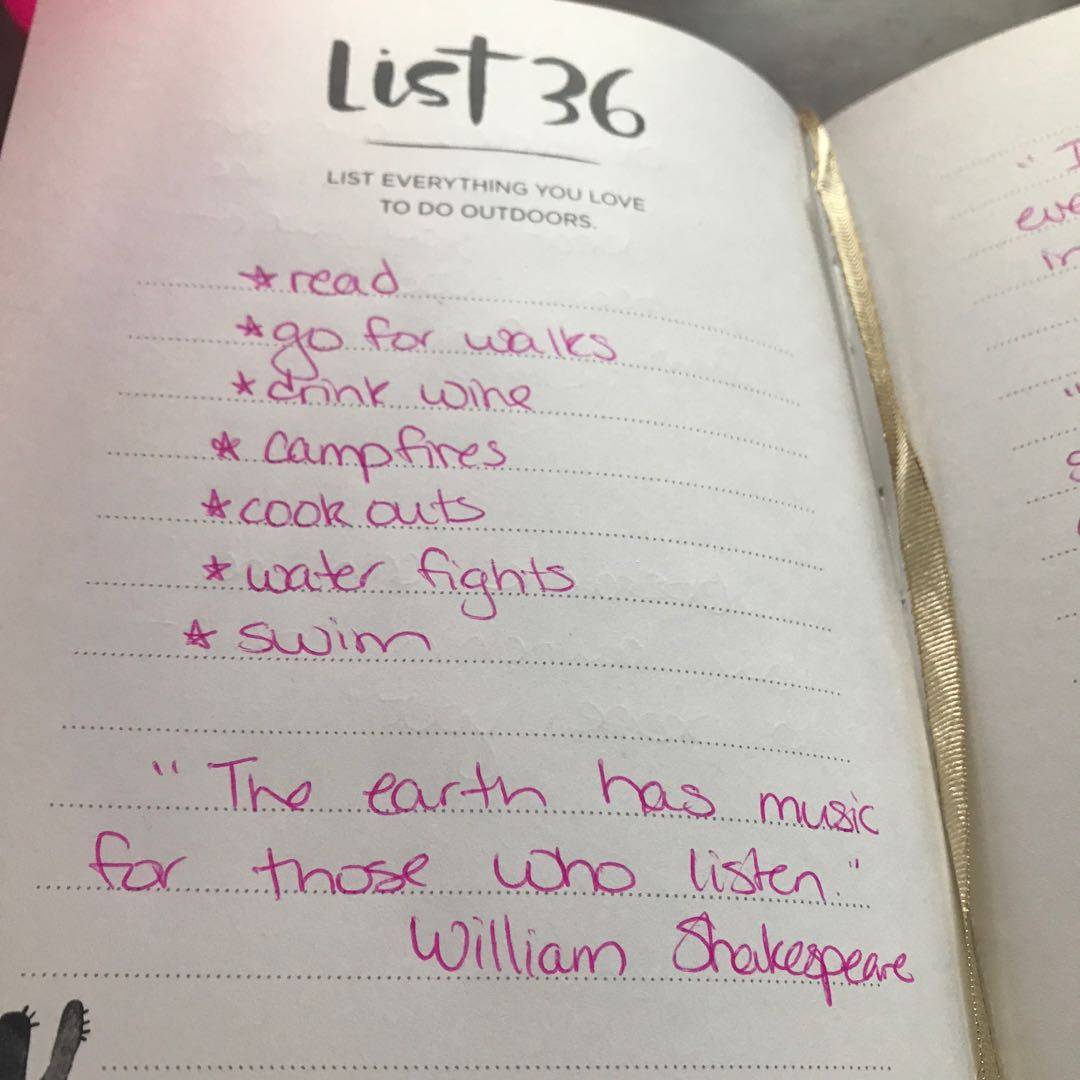 List 36
LIST EVERYTHING YOU LOVE
TO DO OUTDOORS.
* read
* go for walks
* drink wine
* campfires
* cook outs
* water fights
* swim
"The earth has music
for those who listen."
William Shakespeare